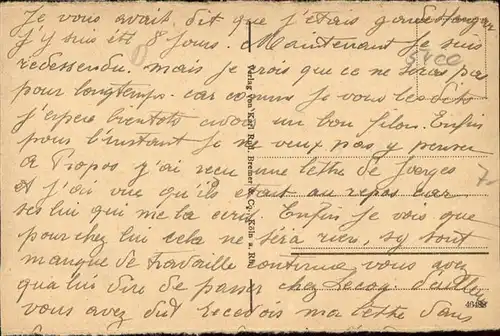 Je vous avait dit que j'étais garde Hangar
j'y suis été 8 jours. Maintenant je suis
redessendu. mais je crois que ce ne seras pas
pour longtemps. car comme je vous les dits
j'espere bientots avoir un bon filon. Enfin
pour l'instant je ne veux pas y penser
a Propos j'ai recu une lettre de Georges
et j'ai vue qu'ils était au repos car
ses lui que me la ecris. Enfin je vous que
pour chez lui cela ne séra rien, sy sont
manque de travaille comme vous avez
qua lui dire de passer chez Lecoq.
vous avez dut recevois ma lettre dans
Verlag von Karl Rud. Bremer & Co., Köln a. Rh.